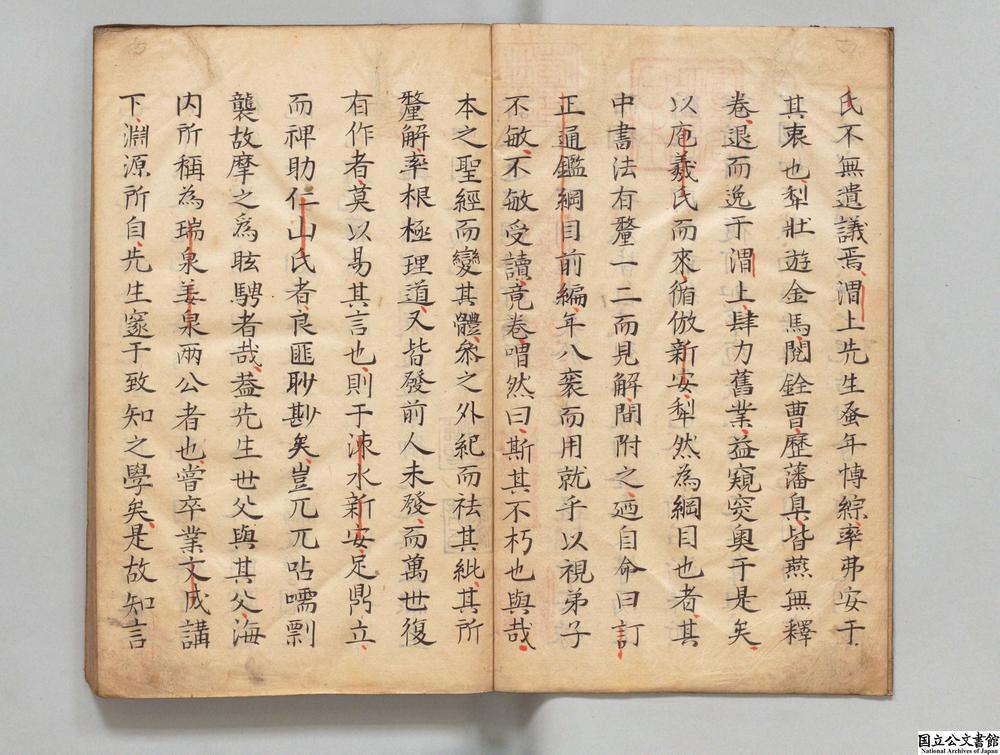 氏不無遺議焉渭上先生蚤年博綜率弗安于
其衷也犁壯遊金馬閱銓曹歷藩臬皆燕無釋
卷退而逸于渭上肆力舊業益窺窔奧于是矣
以庖羲氏而來循倣新安犁然為綱目也者其
中書法有釐一二而見解間附之廼自命曰訂
正通鑑綱目前編年八袠而用就乎以視弟子
不敏不敏受讀竟卷喟然曰斯其不朽也與哉
本之聖經而變其體叅之外紀而祛其紕其所
釐解率根極理道又皆發前人未發而萬世復
有作者莫以易其言也則于涑水新安足鼎立
而裨助仁山氏者良匪眇尠矣豈兀兀呫嚅剽
襲故摩之為眩騁者哉葢先生世父與其父海
内所稱為瑞泉姜泉兩公者也嘗卒業文成講
下淵源所自先生邃于致知之學矣是故知言
国立公文書館
National Archives of Japan